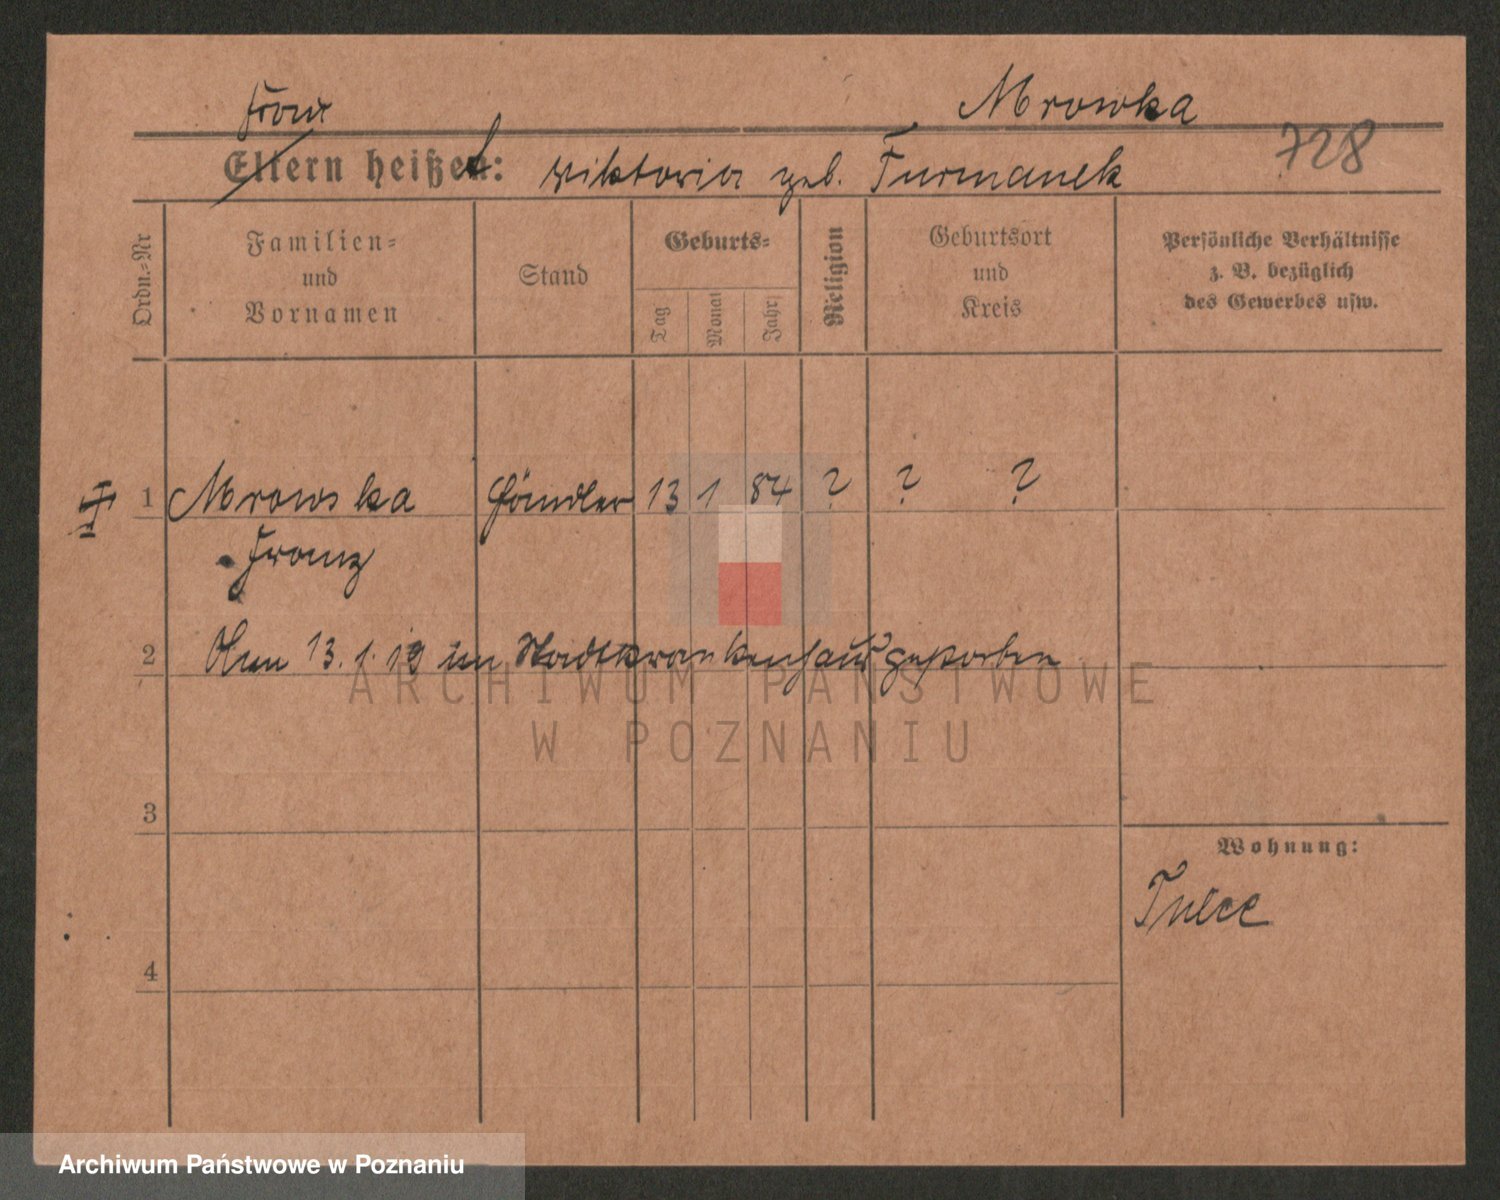 Frau
Mrowka
728
Eltern heißet: Viktoria geb. Furmanek
Ordn.-Nr
Familien-
und
Vornamen
Stand
Geburts-
Tag
Monat
Jahr
Religion
Geburtsort
und
Kreis
Persönliche Verhältnisse
z. B. bezüglich
des Gewerbes usw.
1 Mrowka Händler 13 1 84 ? ? ?
Franz
2 Am 13.1.19 im Stadtkrankenhaus gestorben
ARCHIWUM PAŃSTWOWE
W POZNANIU
3
Wohnung:
Tulce
4
Archiwum Państwowe w Poznaniu